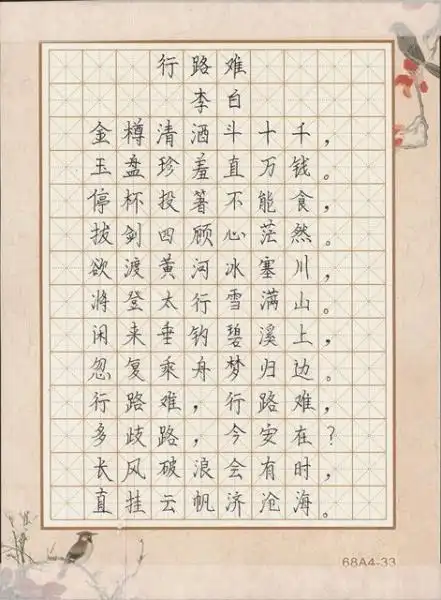 行路难
李白
金樽清酒斗十千，
玉盘珍羞直万钱。
停杯投箸不能食，
拔剑四顾心茫然。
欲渡黄河冰塞川，
将登太行雪满山。
闲来垂钓碧溪上，
忽复乘舟梦归边。
行路难，行路难，
多歧路，今安在？
长风破浪会有时，
直挂云帆济沧海。
68A4-33